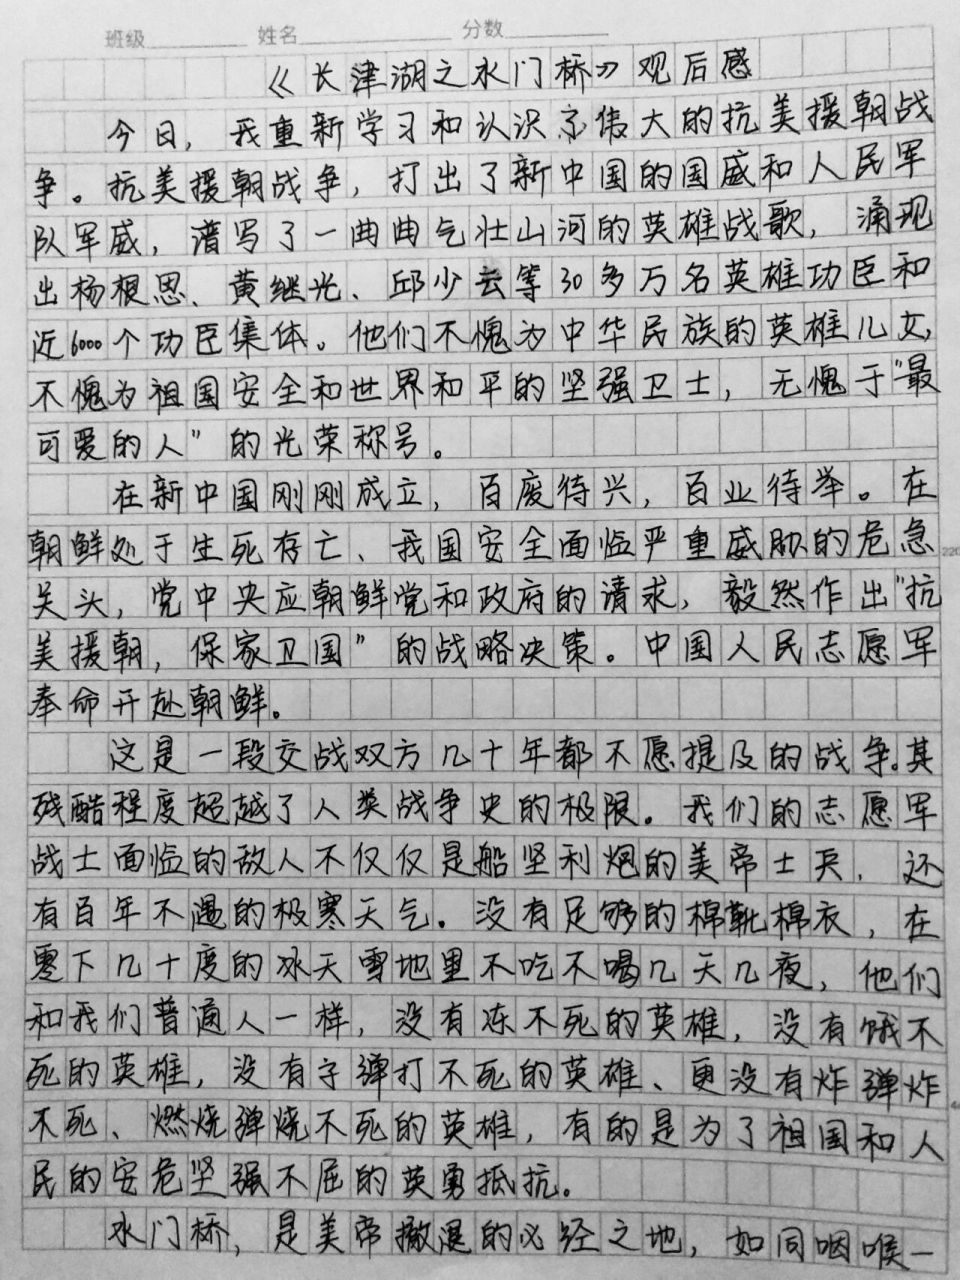 班级 姓名 分数
《长津湖之水门桥》观后感
今日，我重新学习和认识了伟大的抗美援朝战
争。抗美援朝战争，打出了新中国的国威和人民军
队军威，谱写了一曲曲气壮山河的英雄战歌，涌现
出杨根思、黄继光、邱少云等30多万名英雄功臣和
近6000个功臣集体。他们不愧为中华民族的英雄儿女，
不愧为祖国安全和世界和平的坚强卫士，无愧于“最
可爱的人”的光荣称号。
在新中国刚刚成立，百废待兴，百业待举。在
朝鲜处于生死存亡、我国安全面临严重威胁的危急
220
关头，党中央应朝鲜党和政府的请求，毅然作出“抗
美援朝，保家卫国”的战略决策。中国人民志愿军
奉命开赴朝鲜。
这是一段交战双方几十年都不愿提及的战争。其
残酷程度超越了人类战争史的极限。我们的志愿军
战士面临的敌人不仅仅是船坚利炮的美帝士兵，还
有百年不遇的极寒天气。没有足够的棉靴棉衣，在
零下几十度的冰天雪地里不吃不喝几天几夜，他们
和我们普通人一样，没有冻不死的英雄，没有饿不
死的英雄，没有子弹打不死的英雄、更没有炸弹炸
不死、燃烧弹烧不死的英雄，有的是为了祖国和人
民的安危坚强不屈的英勇抵抗。
水门桥，是美帝撤退的必经之地，如同咽喉一